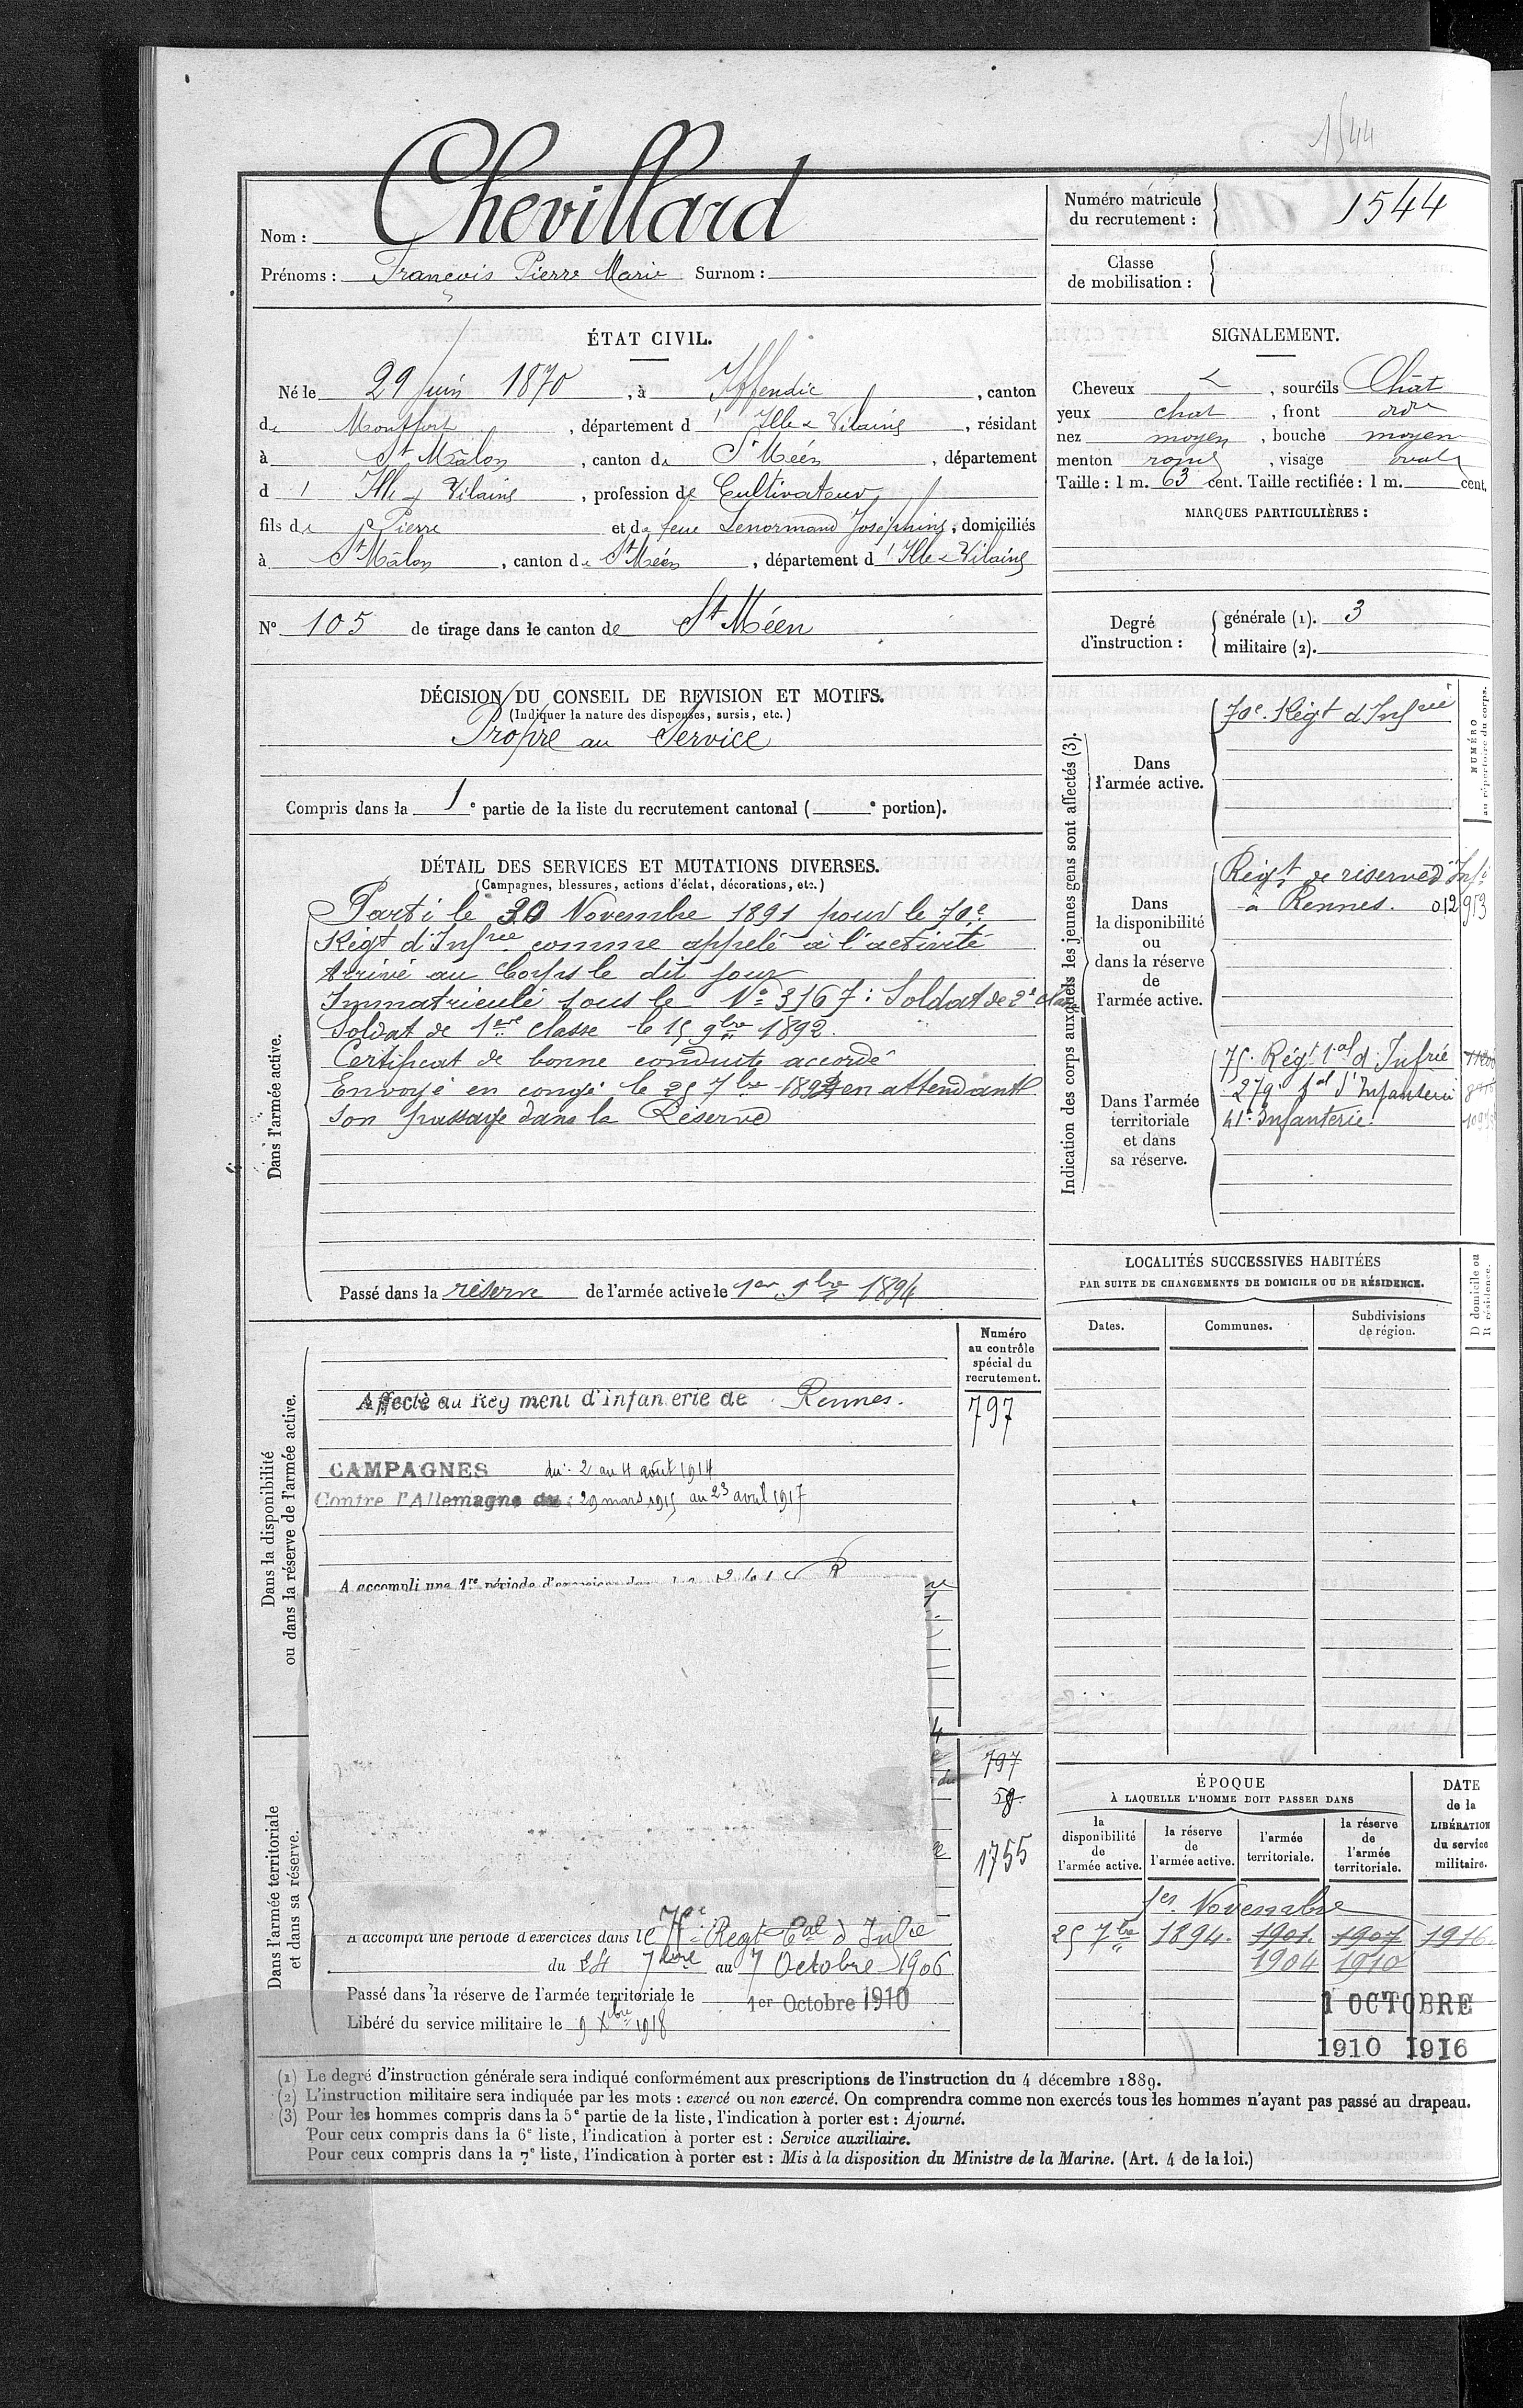 1544
Nom : Chevillard
Prénoms : François Pierre Marie Surnom :
Numéro matricule du recrutement : 1544
Classe de mobilisation :
ÉTAT CIVIL.
Né le 29 Juin 1870, à Iffendic, canton
de Montfort, département d' Ille & Vilaine, résidant
à St Mâlon, canton de St Méen, département
d' Ille & Vilaine, profession de Cultivateur
fils de Pierre et de feue Lenormand Joséphine, domiciliés
à St Mâlon, canton de St Méen, département d' Ille & Vilaine
N° 105 de tirage dans le canton de St Méen
SIGNALEMENT.
Cheveux , sourcils Chat
yeux chat, front ordre
nez moyen, bouche moyen
menton rond, visage ovale
Taille : 1 m. 63 cent. Taille rectifiée : 1 m. cent.
MARQUES PARTICULIÈRES :
Degré d'instruction : générale (1). 3
militaire (2).
DÉCISION DU CONSEIL DE REVISION ET MOTIFS.
(Indiquer la nature des dispenses, sursis, etc.)
Propre au Service
Compris dans la 1e partie de la liste du recrutement cantonal ( e portion).
DÉTAIL DES SERVICES ET MUTATIONS DIVERSES.
(Campagnes, blessures, actions d'éclat, décorations, etc.)
Dans l'armée active.
Parti le 20 Novembre 1891 pour le 70e
Régt d'Infrie comme appelé à l'activité
Arrivé au Corps le dit jour
Immatriculé sous le No 3167 : Soldat de 2e classe
Soldat de 1ere classe le 15 9bre 1892.
Certificat de bonne conduite accordé
Envoyé en congé le 25 7bre 1894 en attendant
son passage dans la Réserve
Passé dans la réserve de l'armée active le 1er 9bre 1894
Indication des corps auxquels les jeunes gens sont affectés (3).
NUMÉRO au répertoire du corps.
Dans l'armée active.
70e Régt d'Infrie
Dans la disponibilité ou dans la réserve de l'armée active.
Régt de réserve d'Infie
à Rennes. 012953
Dans l'armée territoriale et dans sa réserve.
75. Régt tal d'Infrie
279 tal d'Infanterie
41e Infanterie.
LOCALITÉS SUCCESSIVES HABITÉES
PAR SUITE DE CHANGEMENTS DE DOMICILE OU DE RÉSIDENCE.
D domicile ou R résidence.
Dates. Communes. Subdivisions de région.
Dans la disponibilité ou dans la réserve de l'armée active.
Numéro au contrôle spécial du recrutement.
Affecté au Rég ment d'infan erie de Rennes.
797
CAMPAGNES du : 2 au 4 août 1914
Contre l'Allemagne du : 29 mars 1915 au 23 avril 1917
A accompli une 1re période d'exercices
Dans l'armée territoriale et dans sa réserve.
797
58
1755
A accompli une période d'exercices dans le 75e Régt tal d'Infie
du 24 7bre au 7 Octobre 1906
Passé dans la réserve de l'armée territoriale le 1er Octobre 1910
Libéré du service militaire le 9 Xbre 1918
ÉPOQUE
À LAQUELLE L'HOMME DOIT PASSER DANS
DATE de la LIBÉRATION du service militaire.
la disponibilité de l'armée active. la réserve de l'armée active. l'armée territoriale. la réserve de l'armée territoriale.
1er Novembre
25 7bre 1894. 1901. 1907 1916.
1904 1910
1 OCTOBRE
1910 1916
(1) Le degré d'instruction générale sera indiqué conformément aux prescriptions de l'instruction du 4 décembre 1889.
(2) L'instruction militaire sera indiquée par les mots : exercé ou non exercé. On comprendra comme non exercés tous les hommes n'ayant pas passé au drapeau.
(3) Pour les hommes compris dans la 5e partie de la liste, l'indication à porter est : Ajourné.
Pour ceux compris dans la 6e liste, l'indication à porter est : Service auxiliaire.
Pour ceux compris dans la 7e liste, l'indication à porter est : Mis à la disposition du Ministre de la Marine. (Art. 4 de la loi.)